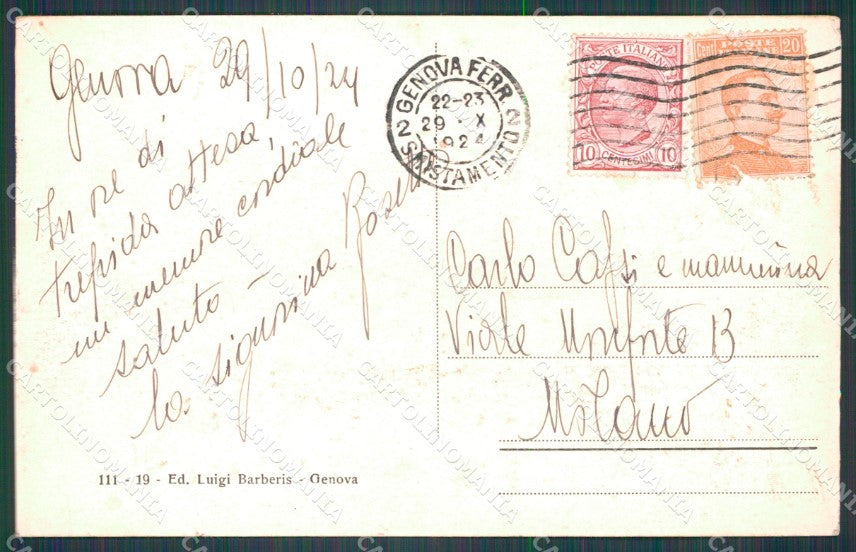 Genova 29/10/24
In ore di
trepida attesa,
un memore cordiale
saluto -
la signorina
111 - 19 - Ed. Luigi Barberis - Genova
GENOVA FERR.
22-23
29 . X
1924
2 2
SMISTAMENTO
POSTE ITALIANE
10 CENTESIMI 10
Cent. POSTE 20
Carlo Caffi e mammina
Viale Monforte 13
Milano
CARTOLINOMANIA